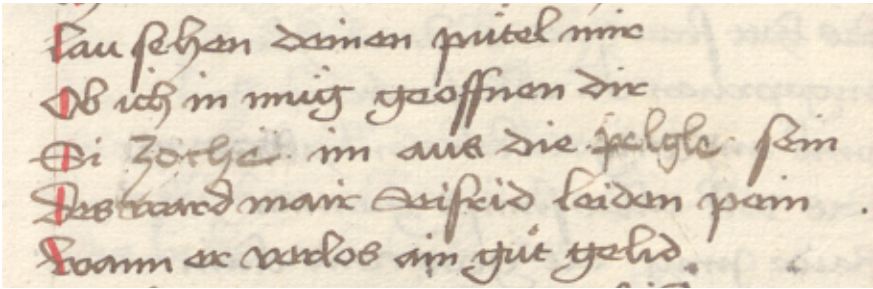 Lau sehen deinen pütel mir
Ob ich in müg geoffnen dir
Si zoche im aus die pelgle sein
Des ward mair Seifrid leiden pein .
Wann er verlos ain güt gelid